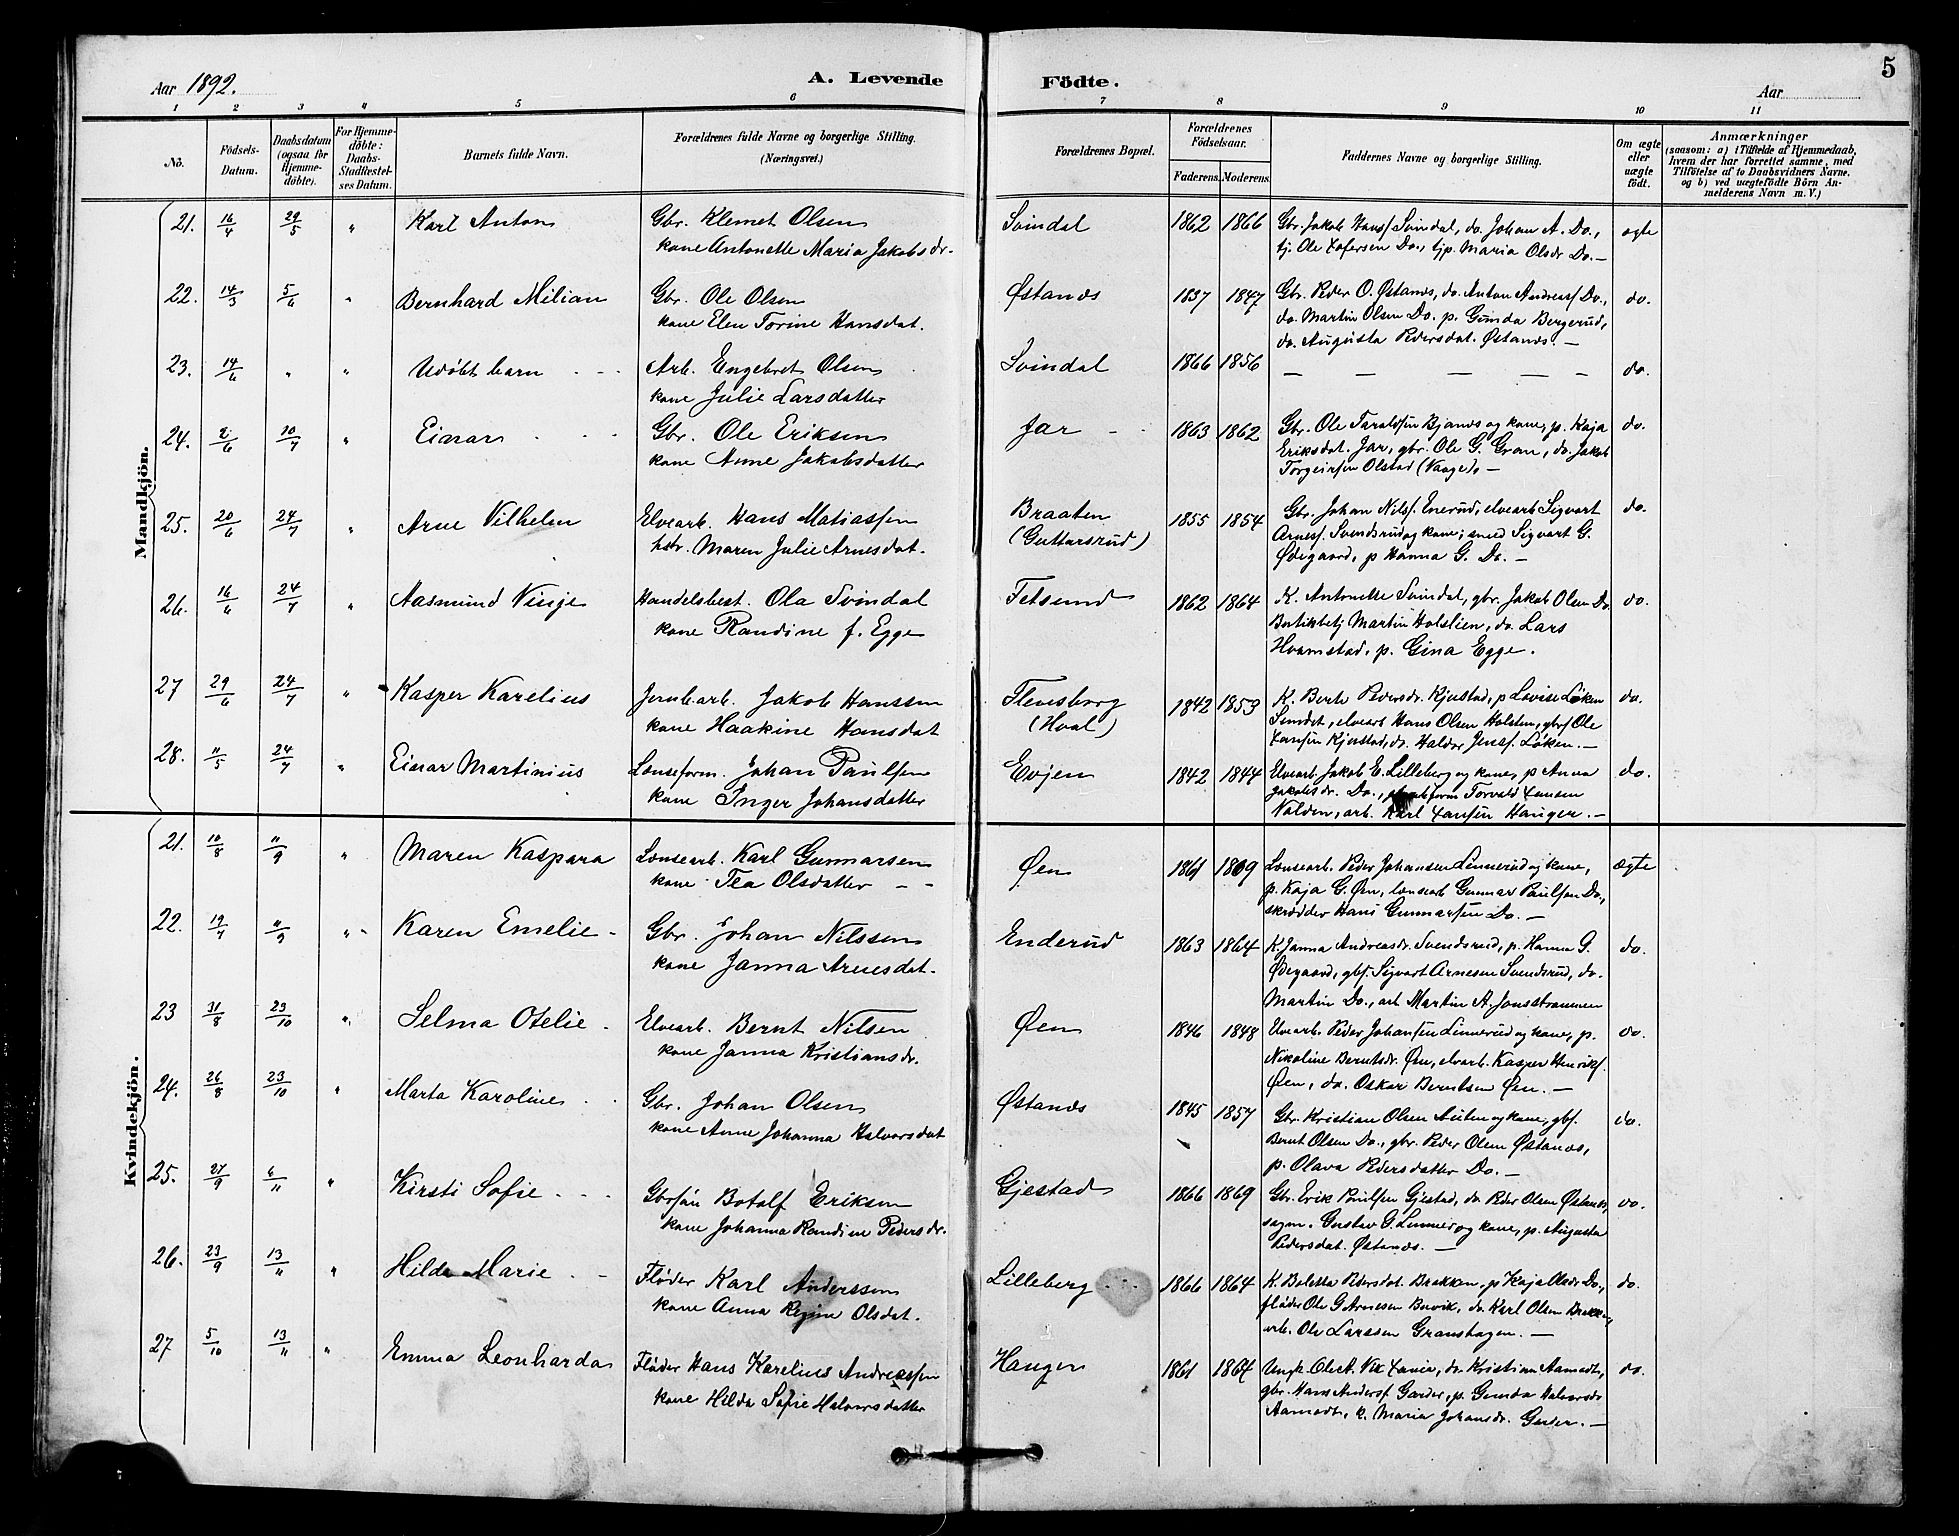 Aar 1892.
A. Levende
Födte.
Aar
5
1 2 3 4 5 6 7 8 9 10 11
No.
Födsels-Datum.
Daabsdatum (ogsaa for Hjemme-döbte).
For Hjemme-döbte: Daabs-Stadfestel-ses Datum.
Barnets fulde Navn.
Forældrenes fulde Navne og borgerlige Stilling. (Næringsvei.)
Forældrenes Bopæl.
Forældrenes Födselsaar.
Faderens. Moderens.
Faddernes Navne og borgerlige Stilling.
Om ægte eller uægte födt.
Anmærkninger (saasom: a) i Tilfælde af Hjemmedaab, hvem der har forrettet samme, med Tilföielse af to Daabsvidners Navne, og b) ved uægtefödte Börn An-melderens Navn m. V.)
Mandkjön.
21. 16/4 29/5 " Karl Anton Gbr. Klemet Olsen Svindal 1862 1866 Gbr. Jakob Hansf Svindal, do. Johan A. Do., ægte
kone Antonette Maria Jakobsdr. tj. Ole Do., tjp. Maria Olsdr Do. —
22. 14/3 5/6 " Bernhard Milian Gbr. Ole Olsen Østands 1837 1847 Gbr. Peder O. Østands, do. Anton Andreasf Do., do.
kone Elen Torine Hansdat. do. Martin Olsen Do. p. Gunda Bergerud,
do. Augusta Pedersdat. Østands. —
23. 14/6 " " Udøbt barn Arb. Engebret Olsen Svindal 1866 1856 — — — — — do.
kone Julie Larsdatter
24. 2/6 10/7 " Einar Gbr. Ole Eriksen Jar 1863 1862 Gbr. Ole Taraldsen Bjands og kone, p. Kaja do.
kone Anne Jakobsdatter Eriksdat. Jar, gbr. Ole G. Gran, do. Jakob
Torgeirsen Olstad (Vaage). —
25. 20/6 24/7 " Arne Vilhelm Elvearb. Hans Matiassen Braaten 1855 1854 Gbr. Johan Nilsf Enerud, elvearb Sigvart do.
hstr. Maren Julie Arnesdat. (Guttersrud) Arnesf. Svendsrud og kone; smed Sigvart G.
Ødegaard, p Hanna G. Do. —
26. 16/6 24/7 " Aasmund Vinje Handelsbest. Ola Svindal Fetsund 1862 1864 K. Antonette Svindal, gbr. Jakob Olsen Do do.
kone Randine f. Egge Butikbetj Martin Holslien, do. Lars
Hvamstad, p. Gina Egge.
27 29/6 24/7 " Kasper Karelius Jernb.arb. Jakob Hanssen Flensborg 1842 1853 K. Berte Pedersdr. Kjustad, p Lovise Løken do.
kone Haakine Hansdat (Hval) Sundet, elvearb Hans Olsen Holsten, gbrf Ole
Hansen Kjustad, do. Haldor Jensf. Løken. —
28. 11/5 24/7 " Einar Martinius Lenseform. Johan Paulsen Evjen 1842 1844 Elvearb. Jakob E. Lilleberg og kone, p Anna do.
kone Inger Johansdatter Jakobsdr. Do., Torvald Hansen
Valden, arb. Karl Hansen Hauger. —
Kvindekjön.
21. 10/8 11/9 " Maren Kaspara Lensearb. Karl Gunnarsen Øen 1861 1869 Lensearb. Peder Johansen Linnerud og kone, ægte
kone Tea Olsdatter — — p. Kaja G. Øen, lensearb Gunnar Paulsen Do.,
skrædder Hans Gunnarsen Do. —
22. 19/7 11/9 " Karen Emelie Gbr. Johan Nilssen Enderud 1863 1864 K. Janna Andreasdr. Svendsrud, p. Hanna G. do.
kone Janna Arnesdat. Ødegaard, gbf. Sigvart Arnesen Svendsrud, do.
Martin Do., arb Martin A. Jonsstrammen
23 31/8 23/10 " Selma Otelie Elvearb. Bernt Nilsen Øen 1846 1848 Elvearb. Peder Johansen Linnerud og kone, p. do.
kone Janna Kristiansdr. Nikoline Berntsdr. Øen, elvarb. Kasper Henriksf.
Øen, do. Oskar Berntsen Øen. —
24. 26/8 23/10 " Marta Karoline Gbr. Johan Olsen Østands 1845 1857 Gbr. Kristian Olsen Austen og kone, gbf. do.
kone Anne Johanna Halvorsdat Bernt Olsen Do., gbr. Peder Olsen Østands,
p. Olava Pedersdatter Do. —
25. 27/9 6/11 " Kirsti Sofie Gbrsøn Botolf Eriksen Gjestad 1866 1869 Gbr. Erik Poulsen Gjestad, do Peder Olsen Østands, do.
kone Johanna Randine Pedersdr. sagm. Gustav G. Linnerog kone, p. Augusta
Pedersdat. Østands. —
26. 23/9 13/11 " Hilda Marie Fløder Karl Anderssen Lilleberg 1866 1864 K. Boletta Pedersdat. Brakken, p Kaja Olsdr Do., do.
kone Anna Regine Olsdat. fløder Ole G Arnesen Buvik, do Karl Olsen Brakken
arb. Ole Larssen Granshagen. —
27 5/10 13/11 " Emma Leonharda Fløder Hans Karelius Andreassen Haugen 1861 1864 Ungk. Ole A. do. Kristian Aamodt, do.
kone Hilda Sofie Halvorsdatter gbr. Hans Andersf Garder, p. Gunda Halvorsdr
Aamodt, k. Maria Johansdr. Garder. —